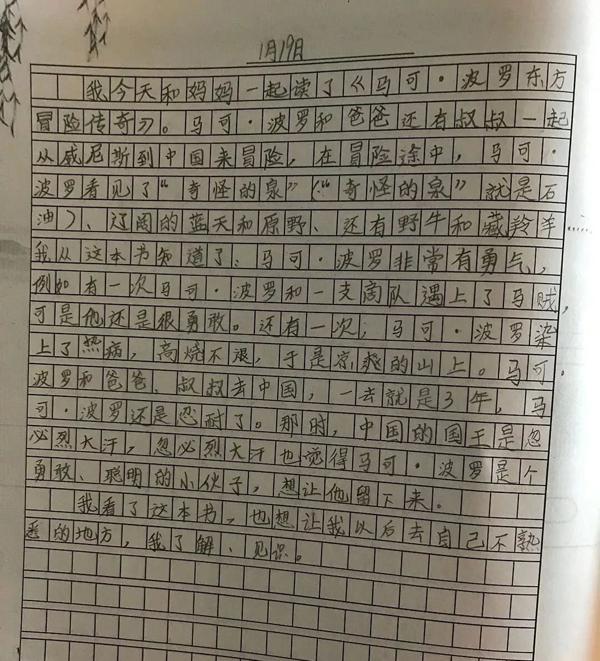 1月19日
我今天和妈妈一起读了《马可·波罗东方
冒险传奇》。马可·波罗和爸爸还有叔叔一起
从威尼斯到中国来冒险，在冒险途中，马可·
波罗看见了“奇怪的泉”（“奇怪的泉”就是石
油）、辽阔的蓝天和原野、还有野牛和藏羚羊……
我从这本书知道了：马可·波罗非常有勇气，
例如有一次马可·波罗和一支商队遇上了马贼，
可是他还是很勇敢。还有一次；马可·波罗染
上了热病，高烧不退，于是凉爽的山上。马可·
波罗和爸爸、叔叔去中国，一去就是3年，马
可·波罗还是忍耐了。那时，中国的国王是忽
必烈大汗，忽必烈大汗也觉得马可·波罗是个
勇敢、聪明的小伙子，想让他留下来。
我看了这本书，也想让我以后去自己不熟
悉的地方，我了解、见识。